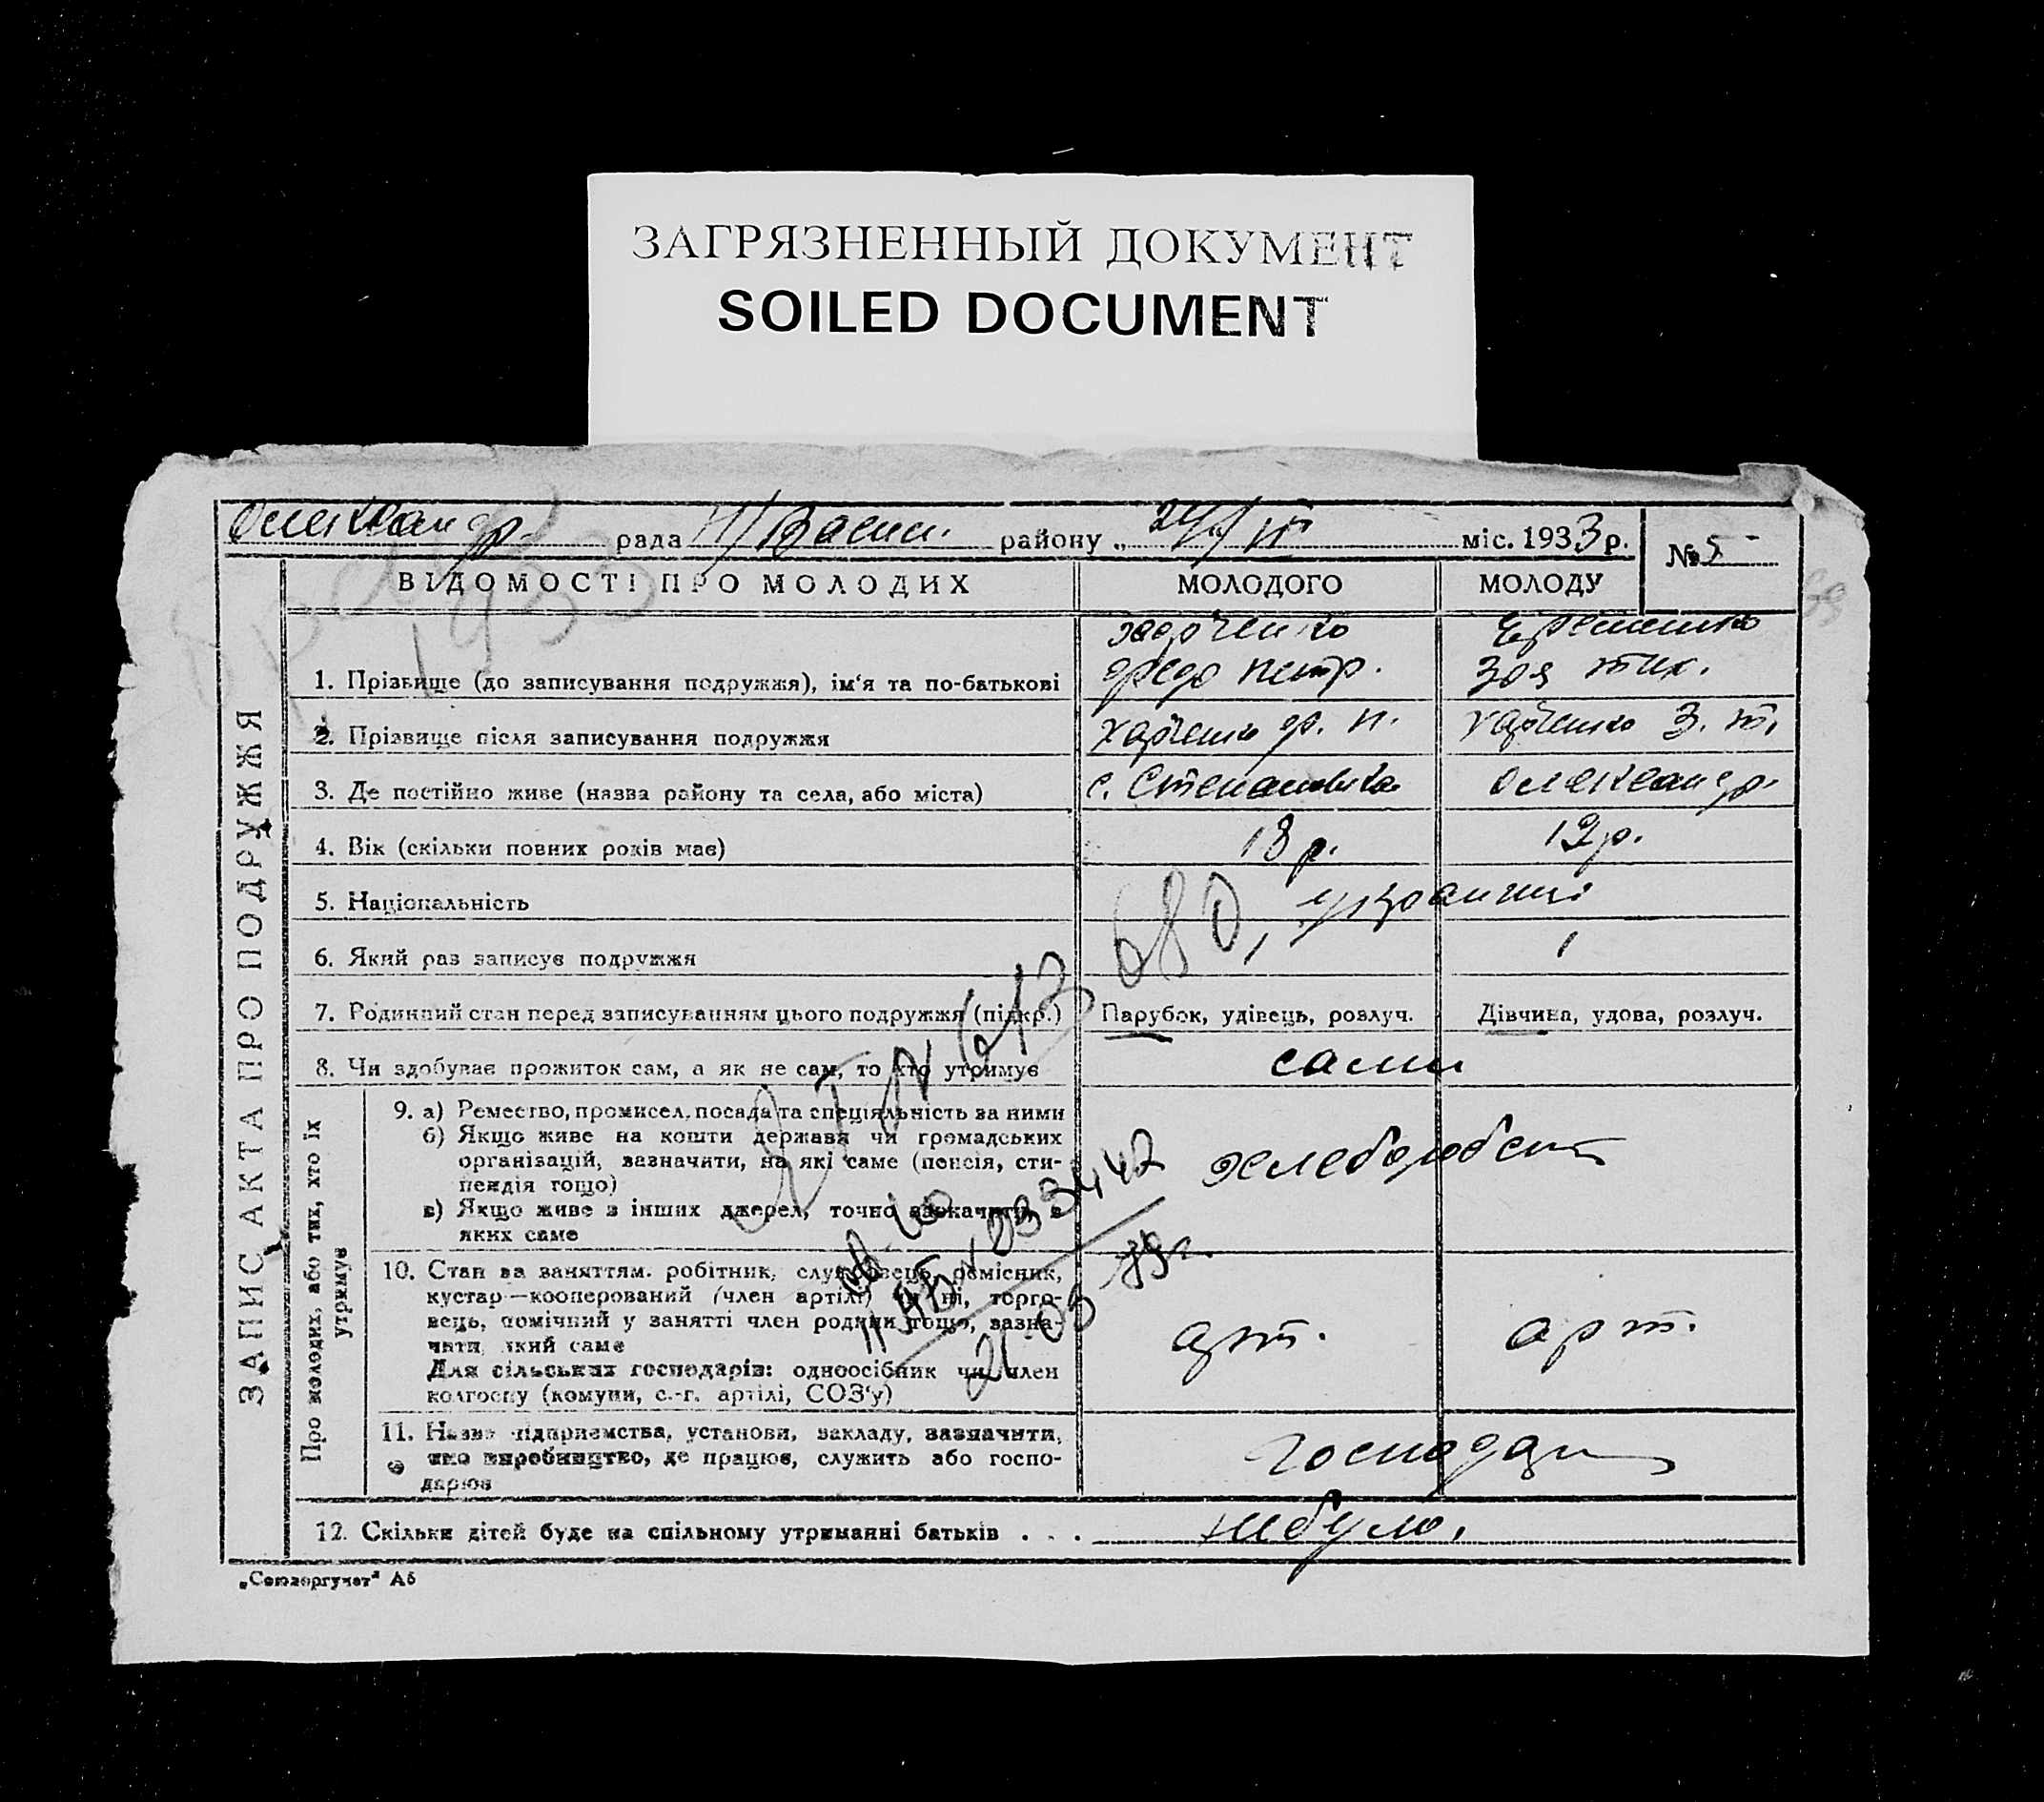 ЗАГРЯЗНЕННЫЙ ДОКУМЕНТ
SOILED DOCUMENT
Олександр. рада Н/Васил. району „24/ІІ міс. 1933 р. № 5
1933
ВІДОМОСТІ ПРО МОЛОДИХ МОЛОДОГО МОЛОДУ
ЗАПИС АКТА ПРО ПОДРУЖЖЯ
Харченко
1. Прізвище (до записування подружжя), ім'я та по-батькові Федо Петр. Зоя Тих.
2. Прізвище після записування подружжя Харченко Ф. П. Харченко З. Т.
3. Де постійно живе (назва району та села, або міста) с. Степановка Олександр.
4. Вік (скільки повних років має) 18 р. р.
5. Національність українці
6. Який раз записує подружжя 1 1
7. Родинний стан перед записуванням цього подружжя (підкр.) Парубок, удівець, розлуч. Дівчина, удова, розлуч.
8. Чи здобуває прожиток сам, а як не сам, то хто утримує сами
Про молодих, або тих, хто їх утримує
9. а) Ремество, промисел, посада та спеціяльність за ними
б) Якщо живе на кошти держави чи громадських
організацій, зазначити, на які саме (пенсія, сти-
пендія тощо)
в) Якщо живе з інших джерел, точно зазначити, з
яких саме
хлеборобст
10. Стан за заняттям. робітник, службовець, ремісник,
кустар—кооперований (член артілі) чи ні, торго-
вець, помічний у занятті член родини тощо, зазна-
чити, який саме
Для сільських господарів: одноосібник чи член
колгоспу (комуни, с.-г. артілі, СОЗ'у)
арт. арт.
11. Назва підприємства, установи, закладу, зазначити,
яке виробництво, де працює, служить або госпо-
дарює
господар
12. Скільки дітей буде на спільному утриманні батьків . . . небуло.
„Союзоргучет" А5
680